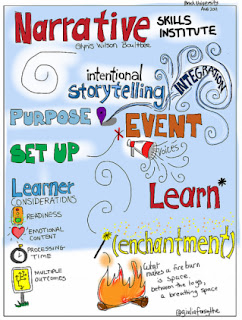 Brock University
Aug 2012
Narrative SKILLS
INSTITUTE
Glynis Wilson Boultbee
intentional
storytelling
INTEGRATION
PURPOSE
EVENT
voices
SET UP
Learner
CONSIDERATIONS
READINESS
EMOTIONAL
CONTENT
PROCESSING
TIME
MULTIPLE
OUTCOMES
Learn
(enchantment)
What
makes a fire burn
is space
between the logs,
a breathing space
@giuliaforsythe